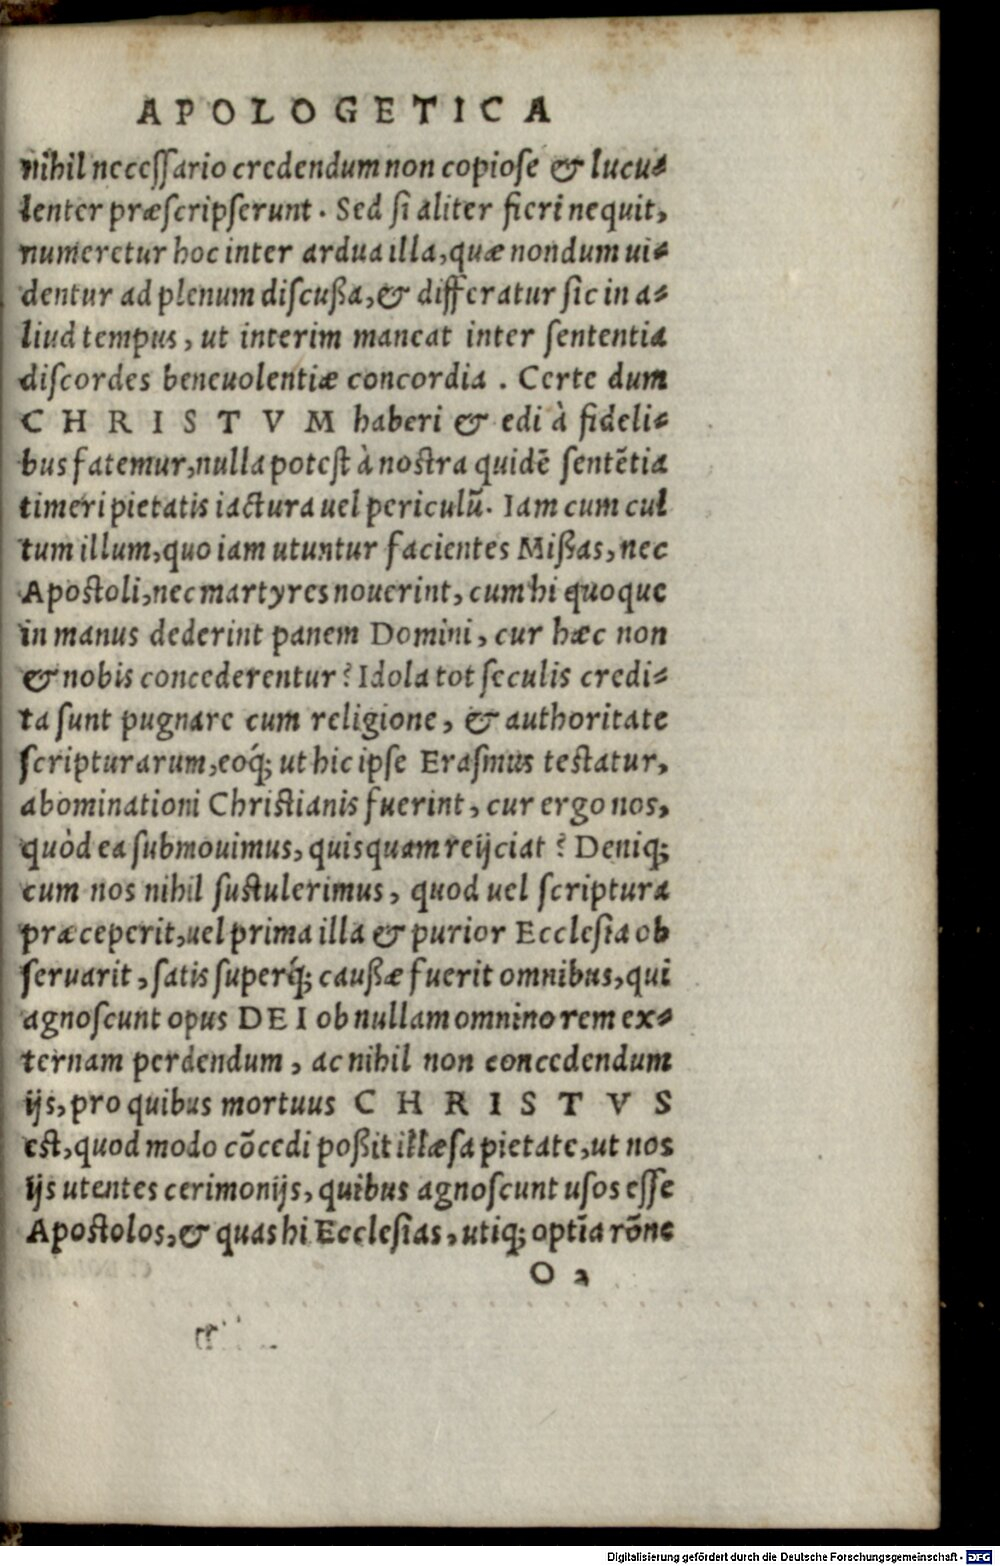 APOLOGETICA
nihil necessario credendum non copiose & lucu-
lenter præscripserunt. Sed si aliter fieri nequit,
numeretur hoc inter ardua illa, quæ nondum ui-
dentur ad plenum discußa, & differatur sic in a-
liud tempus, ut interim maneat inter sententia
discordes beneuolentiæ concordia. Certe dum
CHRISTVM haberi & edi à fideli-
bus fatemur, nulla potest à nostra quidē sentētia
timeri pietatis iactura uel periculū. Iam cum cul
tum illum, quo iam utuntur facientes Mißas, nec
Apostoli, nec martyres nouerint, cum hi quoque
in manus dederint panem Domini, cur hæc non
& nobis concederentur? Idola tot seculis credi-
ta sunt pugnare cum religione, & authoritate
scripturarum, eoq́; ut hic ipse Erasmus testatur,
abominationi Christianis fuerint, cur ergo nos,
quòd ea submouimus, quisquam reijciat? Deniq;
cum nos nihil sustulerimus, quod uel scriptura
præceperit, uel prima illa & purior Ecclesia ob
seruarit, satis superq́; caußæ fuerit omnibus, qui
agnoscunt opus DEI ob nullam omnino rem ex-
ternam perdendum, ac nihil non concedendum
ijs, pro quibus mortuus CHRISTVS
est, quod modo cōcedi poßit illæsa pietate, ut nos
ijs utentes cerimonijs, quibus agnoscunt usos esse
Apostolos, & quas hi Ecclesias, utiq; optīa rōne
O 2
Digitalisierung gefördert durch die Deutsche Forschungsgemeinschaft - DFG